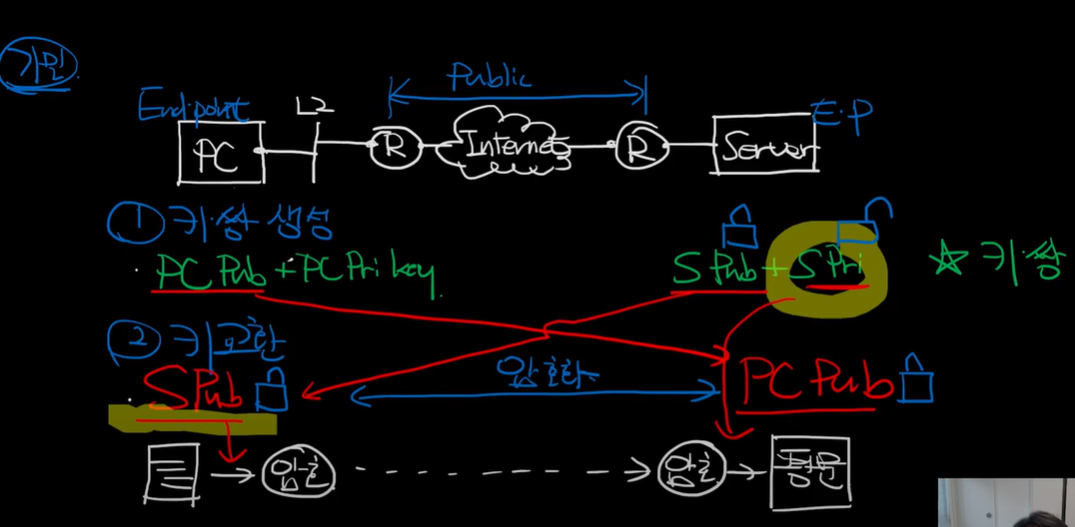 기밀
Public
Endpoint L2 E.P
PC R Internet R Server
① 키·쌍 생성
PC Pub + PC Pri key S Pub + S Pri ☆ 키·쌍
② 키교환
암호화
S Pub PC Pub
암호 암호 평문